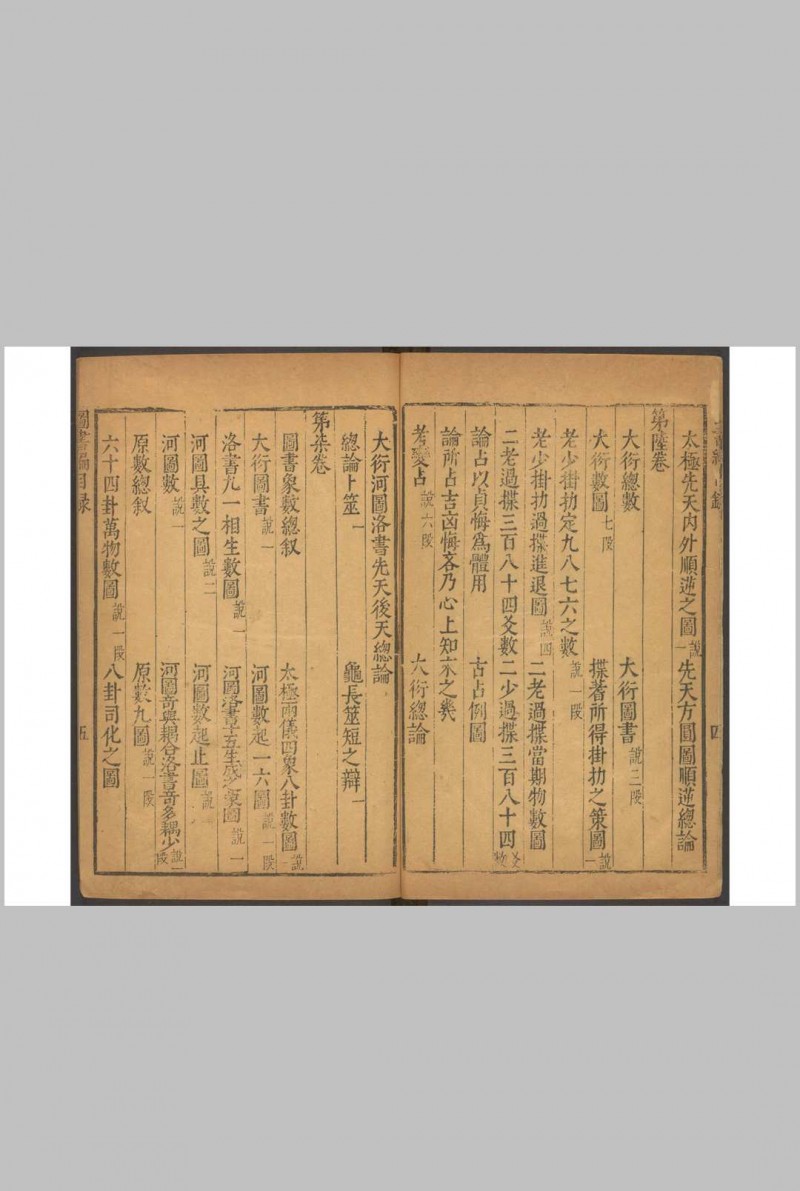 太極先天內外順逆之圖 說一 先天方圓圖順逆總論
第陸卷
大衍總數 大衍圖書 說三段
大衍數圖 七段 揲蓍所得掛扐之策圖 說一
老少掛扐定九八七六之數 說一段
老少掛扐過揲進退圖 說四 二老過揲當期物數圖
二老過揲三百八十四爻數 二少過揲三百八十四爻物
論占以貞悔爲體用 古占例圖
論所占吉凶悔吝乃心上知來之幾
考變占 說六段 大衍總論
四
大衍河圖洛書先天後天總論
總論卜筮 一 龜長筮短之辯 一
第柒卷
圖書象數總叙 太極兩儀四象八卦數圖 說一
大衍圖書 說一 河圖數起一六圖 說一段
洛書九一相生數圖 說一 河圖洛書十五生成之象圖 說一
河圖具數之圖 說二 河圖數起止圖 說
河圖數 說一 河圖奇與耦合洛書奇多耦少 說一段
原數總叙 原數九圖 說一段
六十四卦萬物數圖 說一段 八卦司化之圖
圖書編目錄
五